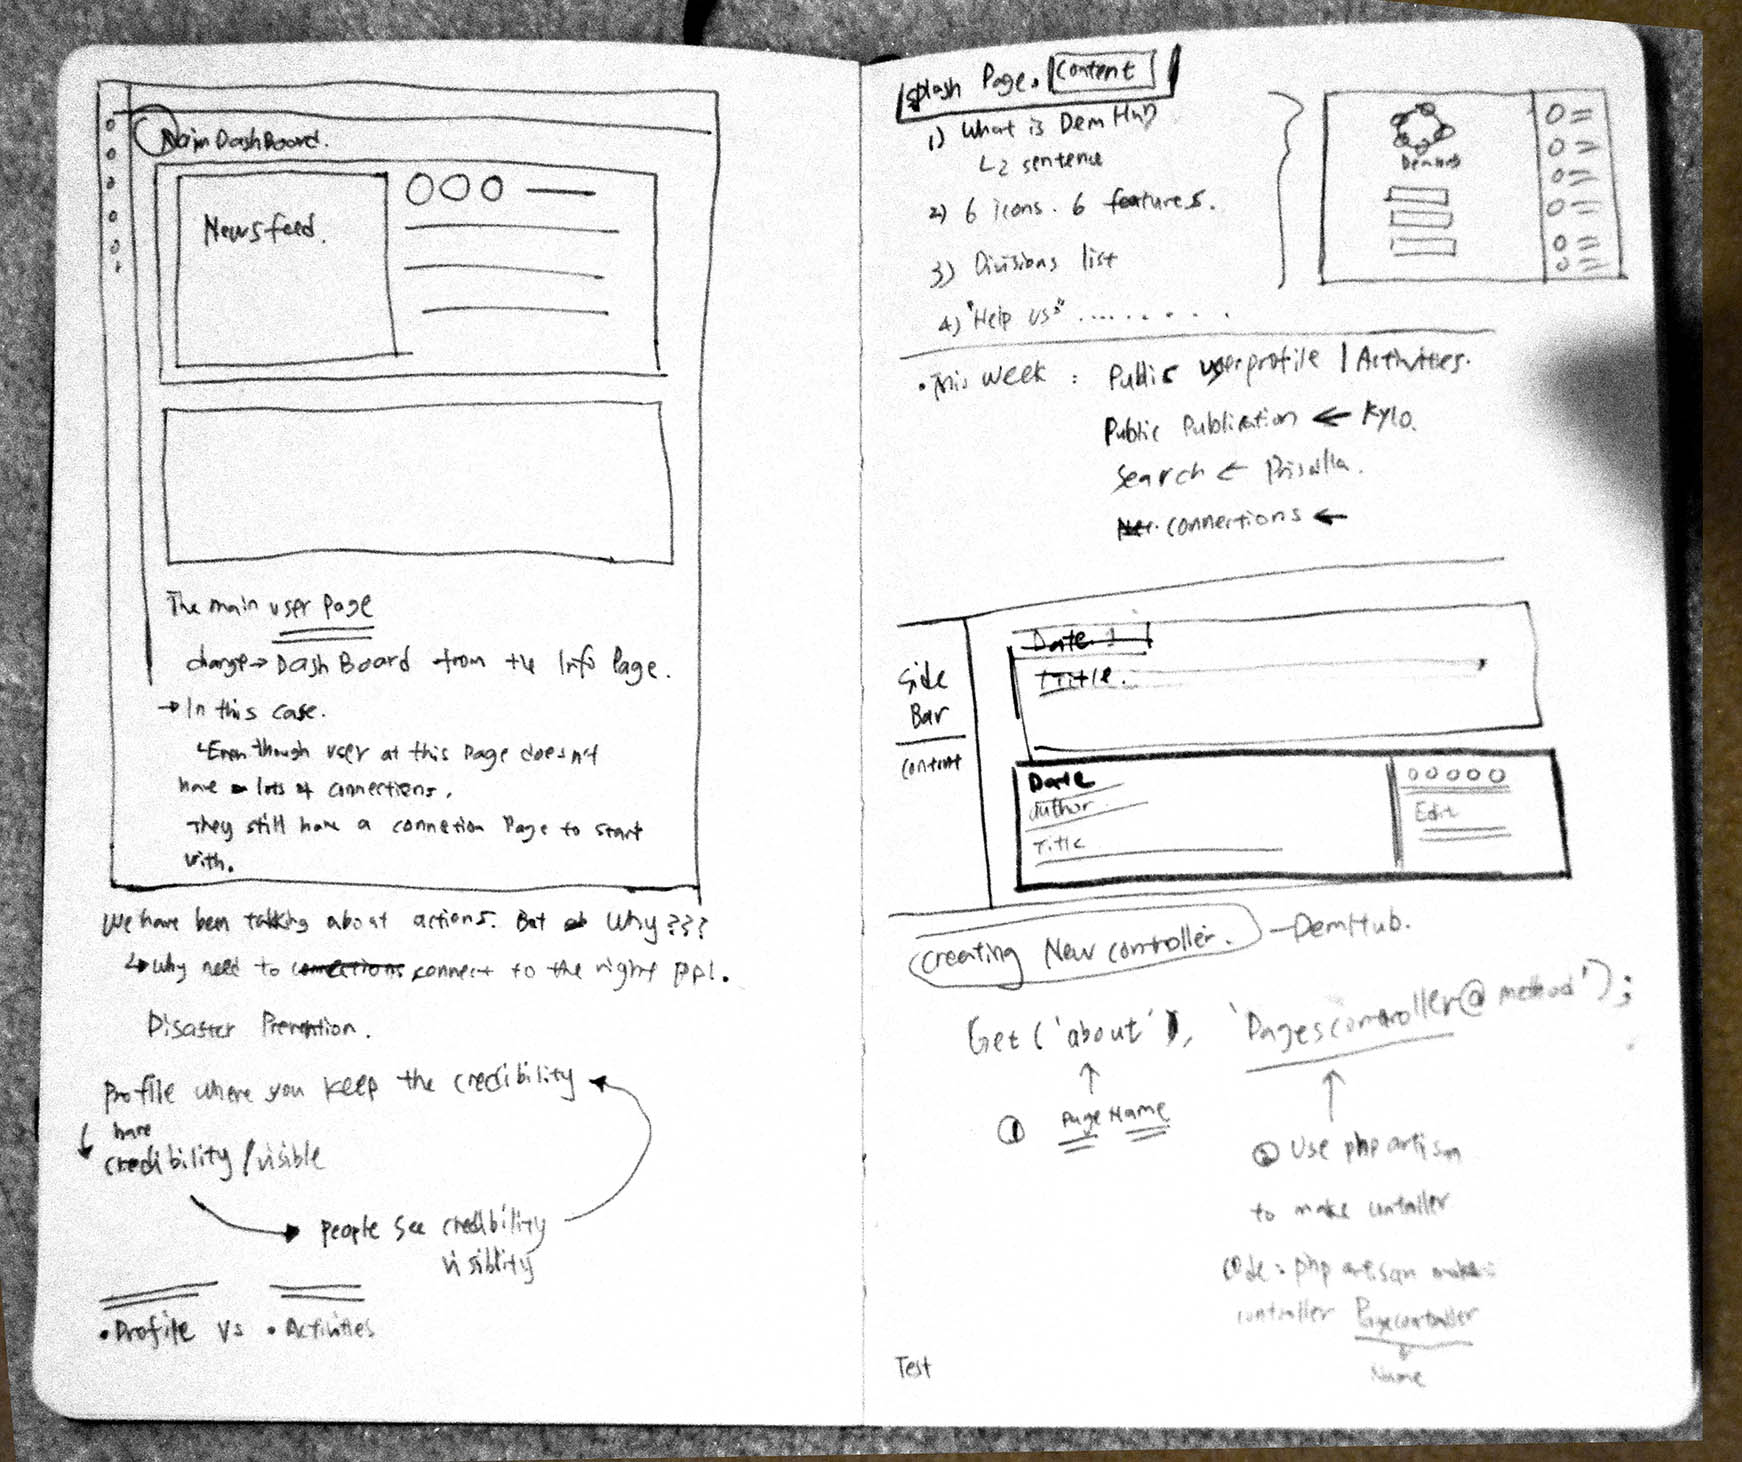 Main DashBoard.
Newsfeed.
The main user Page
change→ DashBoard from the Info Page.
→ In this case.
↳Even though user at this Page doesn't
have lots of connections.
They still have a connetion Page to start
with.
We have been talking about actions. But Why???
↳ Why need to connect to the right ppl.
Disaster Prevention.
Profile where you keep the credibility
have
credibility / visible
People see credibility
visiblity
• Profile vs • Activities
Splash Page. Content
1) What is DemHub
↳ 2 sentence
2) 6 icons. 6 features.
3) Divisions list
4) "Help us" ........
DemHub
• This week : Public userprofile / Activities.
Public Publication ← Kylo.
Search ←
connections ←
Side
Bar
content
Date
Title.
Date
author
Title
Edit
Creating New controller. — DemHub.
Get ('about'), 'Pagescontroller@method');
① Page Name
② Use php artism
to make controller
code: php artisan make:
controller Pagecontroller
Name
Test